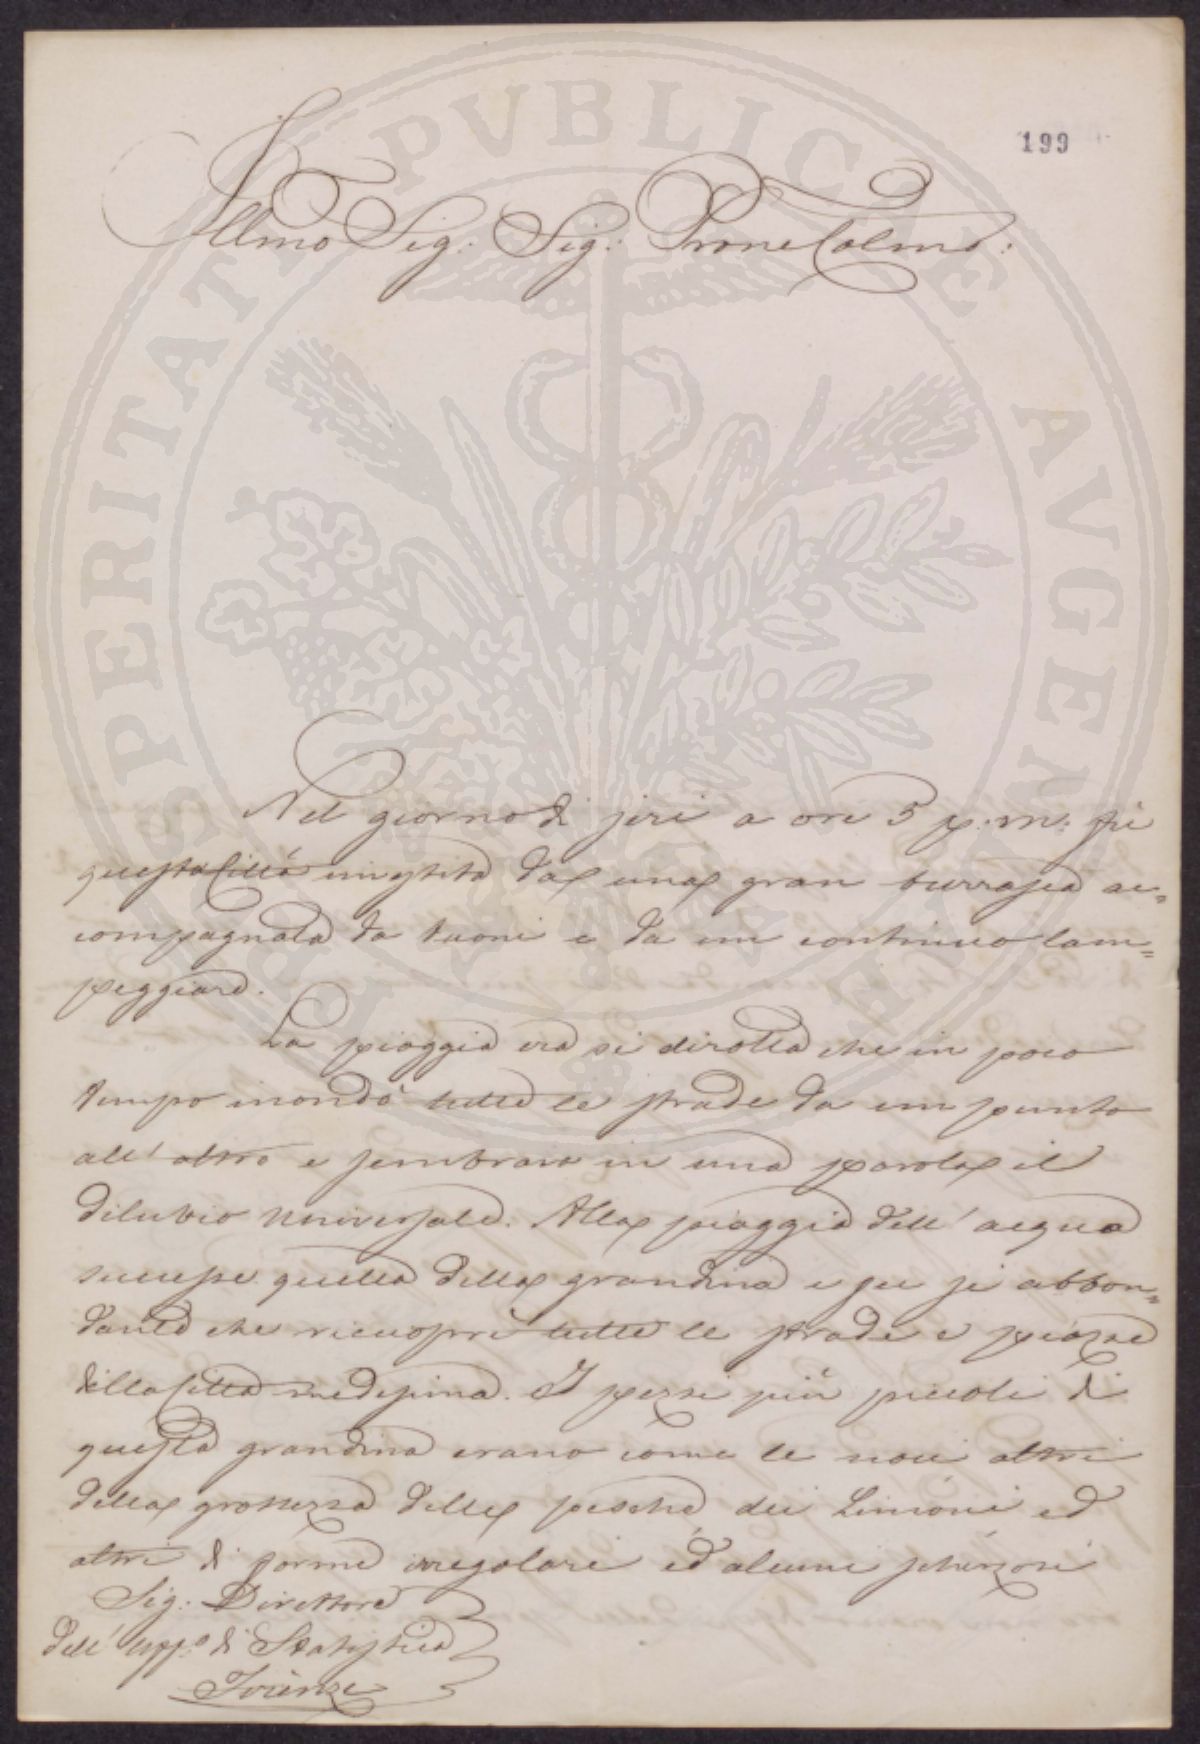 199
Illmo Sig: Sig: Prone Colmo:
Nel giorno di jeri a ore 5 p:m: fù
questa Città investita da una gran burrasca ac=
compagnata da tuoni e da un continuo lam=
peggiare.
La pioggia era si dirotta che in poco
tempo inondò tutte le strade da un punto
all'altro e sembrava in una parola il
diluvio universale. Alla pioggia dell'acqua
successe quella della grandina e fu si abbon=
dante che ricuoprì tutte le strade e piazze
della Città medesima. I pezzi più piccoli di
questa grandina erano come le noci altri
della grossezza delle pesche dei Limoni ed
altri di forme irregolari ed alcuni
Sig: Direttore
dell' Uff.o di Statistica
Firenze
PROSPERITATI PVBLICAE AVGENDAE